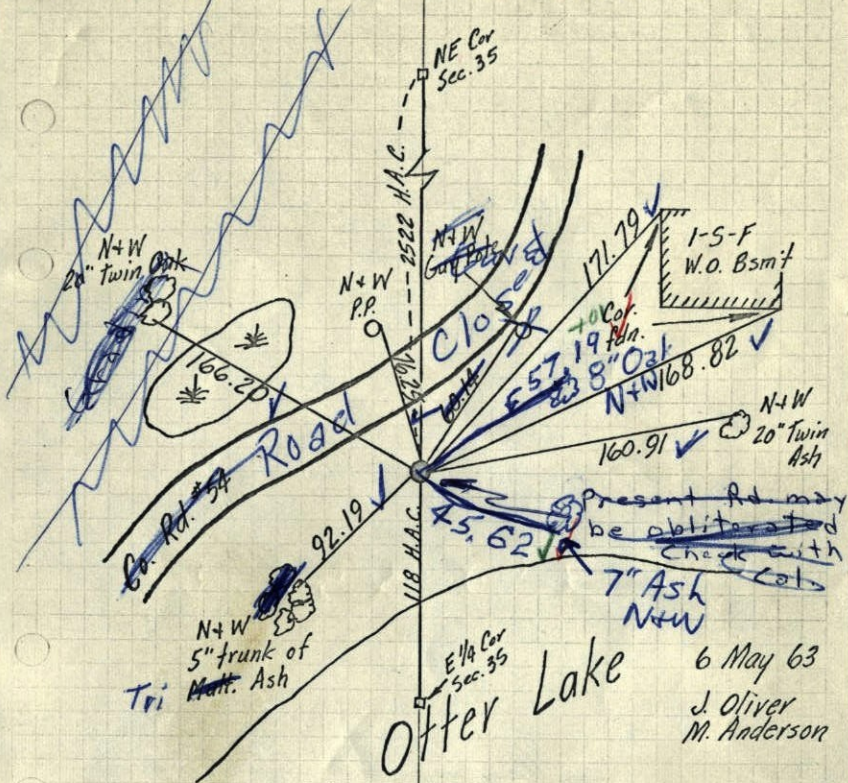 NE Cor
Sec. 35
2522 H.A.C.
N+W
20" Twin Oak
N+W
P.P.
N+W
Guy Pole
Closed
171.79
1-S-F
W.O. Bsm't
+01
Cor.
fdn.
E 57.19
8" Oak
N+W
168.82
166.20
76.25
60.14
N+W
20" Twin
Ash
160.91
Co. Rd. #54
Road
92.19
45.62
Present Rd. may
be obliterated
Check with
Co.
7" Ash
N+W
118 H.A.C.
N+W
5" trunk of
Tri Mult. Ash
E 1/4 Cor
Sec. 35
Otter Lake
6 May 63
J. Oliver
M. Anderson